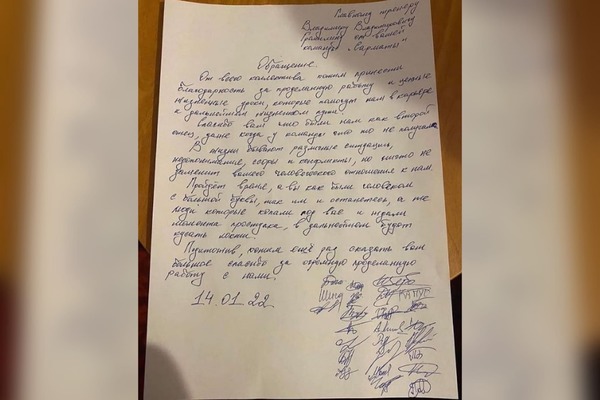 Главному тренеру
Владимиру Владимировичу
от вашей
команды "Сарматы"
Обращение.
От всего коллектива хотим принести
благодарность за проделанную работу и ценные
жизненные уроки, которые помогут нам в карьере
и дальнейшем жизненном пути.
Спасибо вам что были нам как второй
отец, даже когда у команды что то не получалось
В жизни бывают разные ситуации,
недопонимания, ссоры и конфликты, но ничто не
заменит вашего человеческого отношения к нам.
Пройдёт время, а вы как были человеком
с большой буквы, так им и останетесь, а те
люди которые копали под вас и ждали
момента проступка, в дальнейшем будут
кусать локти.
хотим ещё раз сказать вам
большое спасибо за огромную проделанную
работу с нами.
14.01.22